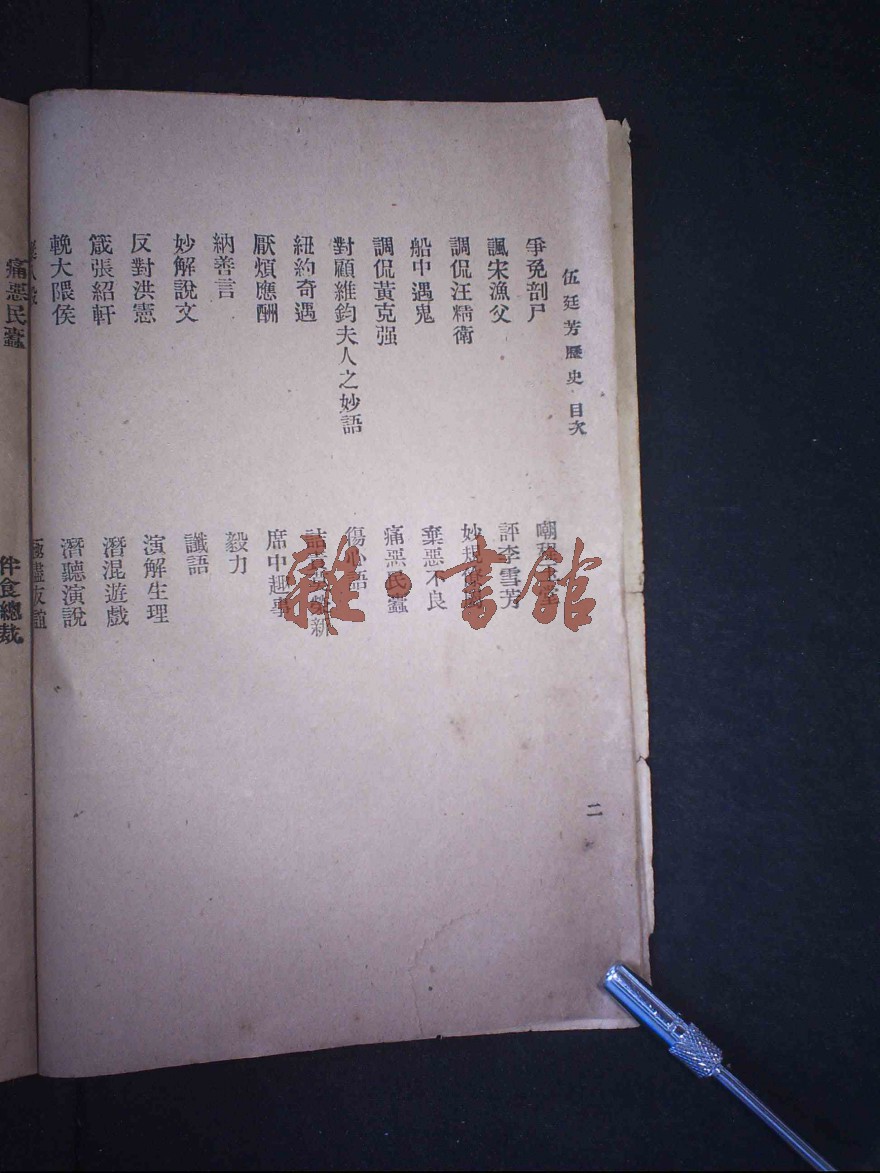 伍廷芳歷史 目次
爭免剖尸
諷宋漁父
調侃汪精衛
船中遇鬼
調侃黃克强
對顧維鈞夫人之妙語
紐約奇遇
厭煩應酬
納善言
妙解說文
反對洪憲
箴張紹軒
輓大隈侯
嘲
評李雪芳
妙
棄惡不良
痛惡民蠹
傷心語
新
席中趣事
毅力
讖語
演解生理
潛混遊戲
潛聽演說
二
痛惡民蠹
伴食總裁
雜·書館